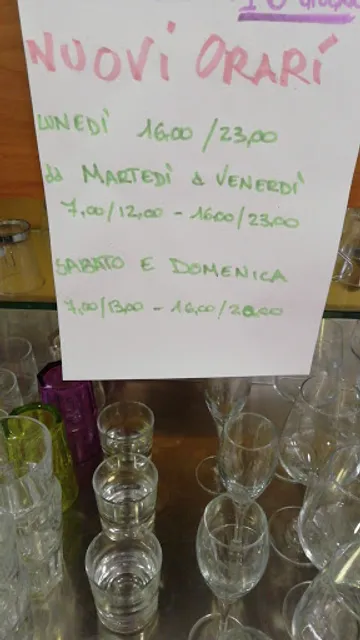 NUOVI ORARÍ
LUNEDÌ 16,00/23,00
da MARTEDÌ a VENERDÌ
7,00/12,00 - 16,00/23,00
SABATO E DOMENICA
7,00/13,00 - 16,00/20,00